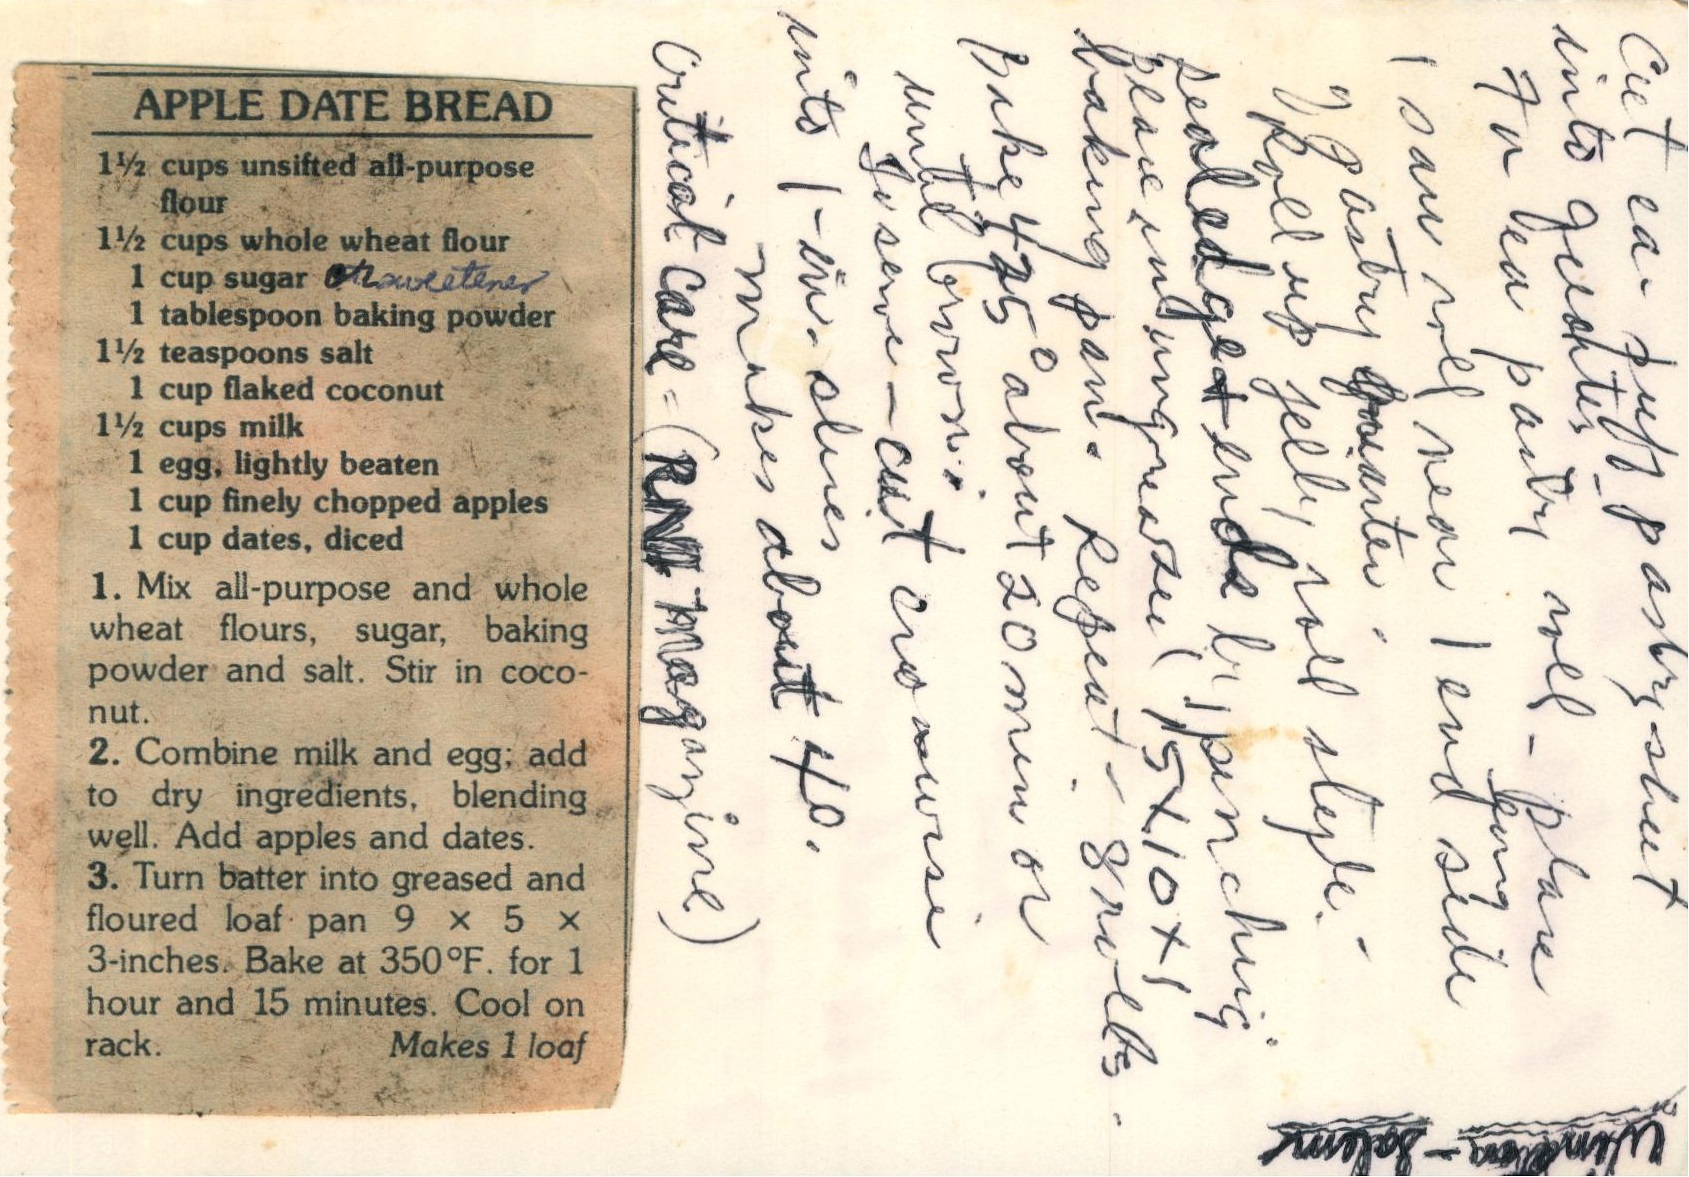 APPLE DATE BREAD
1½ cups unsifted all-purpose
flour
1½ cups whole wheat flour
1 cup sugar or sweetener
1 tablespoon baking powder
1½ teaspoons salt
1 cup flaked coconut
1½ cups milk
1 egg, lightly beaten
1 cup finely chopped apples
1 cup dates, diced
1. Mix all-purpose and whole
wheat flours, sugar, baking
powder and salt. Stir in coco-
nut.
2. Combine milk and egg; add
to dry ingredients, blending
well. Add apples and dates.
3. Turn batter into greased and
floured loaf pan 9 × 5 ×
3-inches. Bake at 350°F. for 1
hour and 15 minutes. Cool on
rack. Makes 1 loaf
Cut ea. puff pastry sheet
into quarters
For ea pastry roll - place
1 sau roll near 1 long end side
of pastry quarter.
Roll up jelly roll style.-
Seal edge + ends by pinching.
Place in ungreased (15x10x1
baking pan. Repeat - 8 rolls.
Bake 425° about 20 min or
until brown.
To serve - cut crosswise
into 1-in. slices
Makes about 40.
Critical Care - (RN magazine)